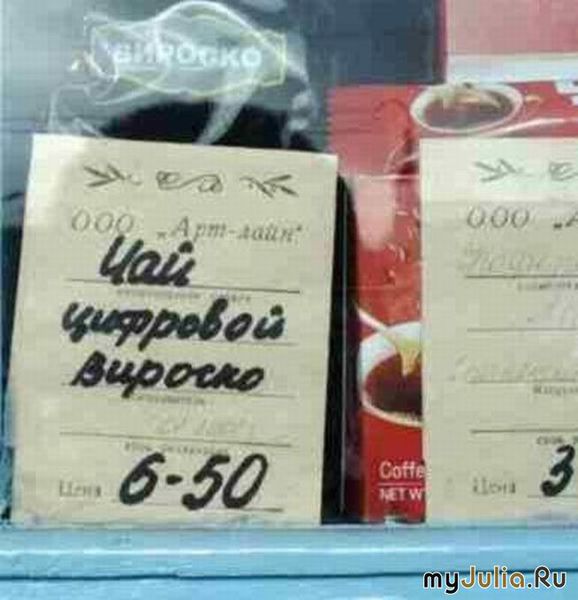 ВИРОСКО
ООО „Арт-лайн“
Чай
цифровой
вироско
Цена 6-50
ООО
Coffe
NET W
Цена 3
myJulia.Ru